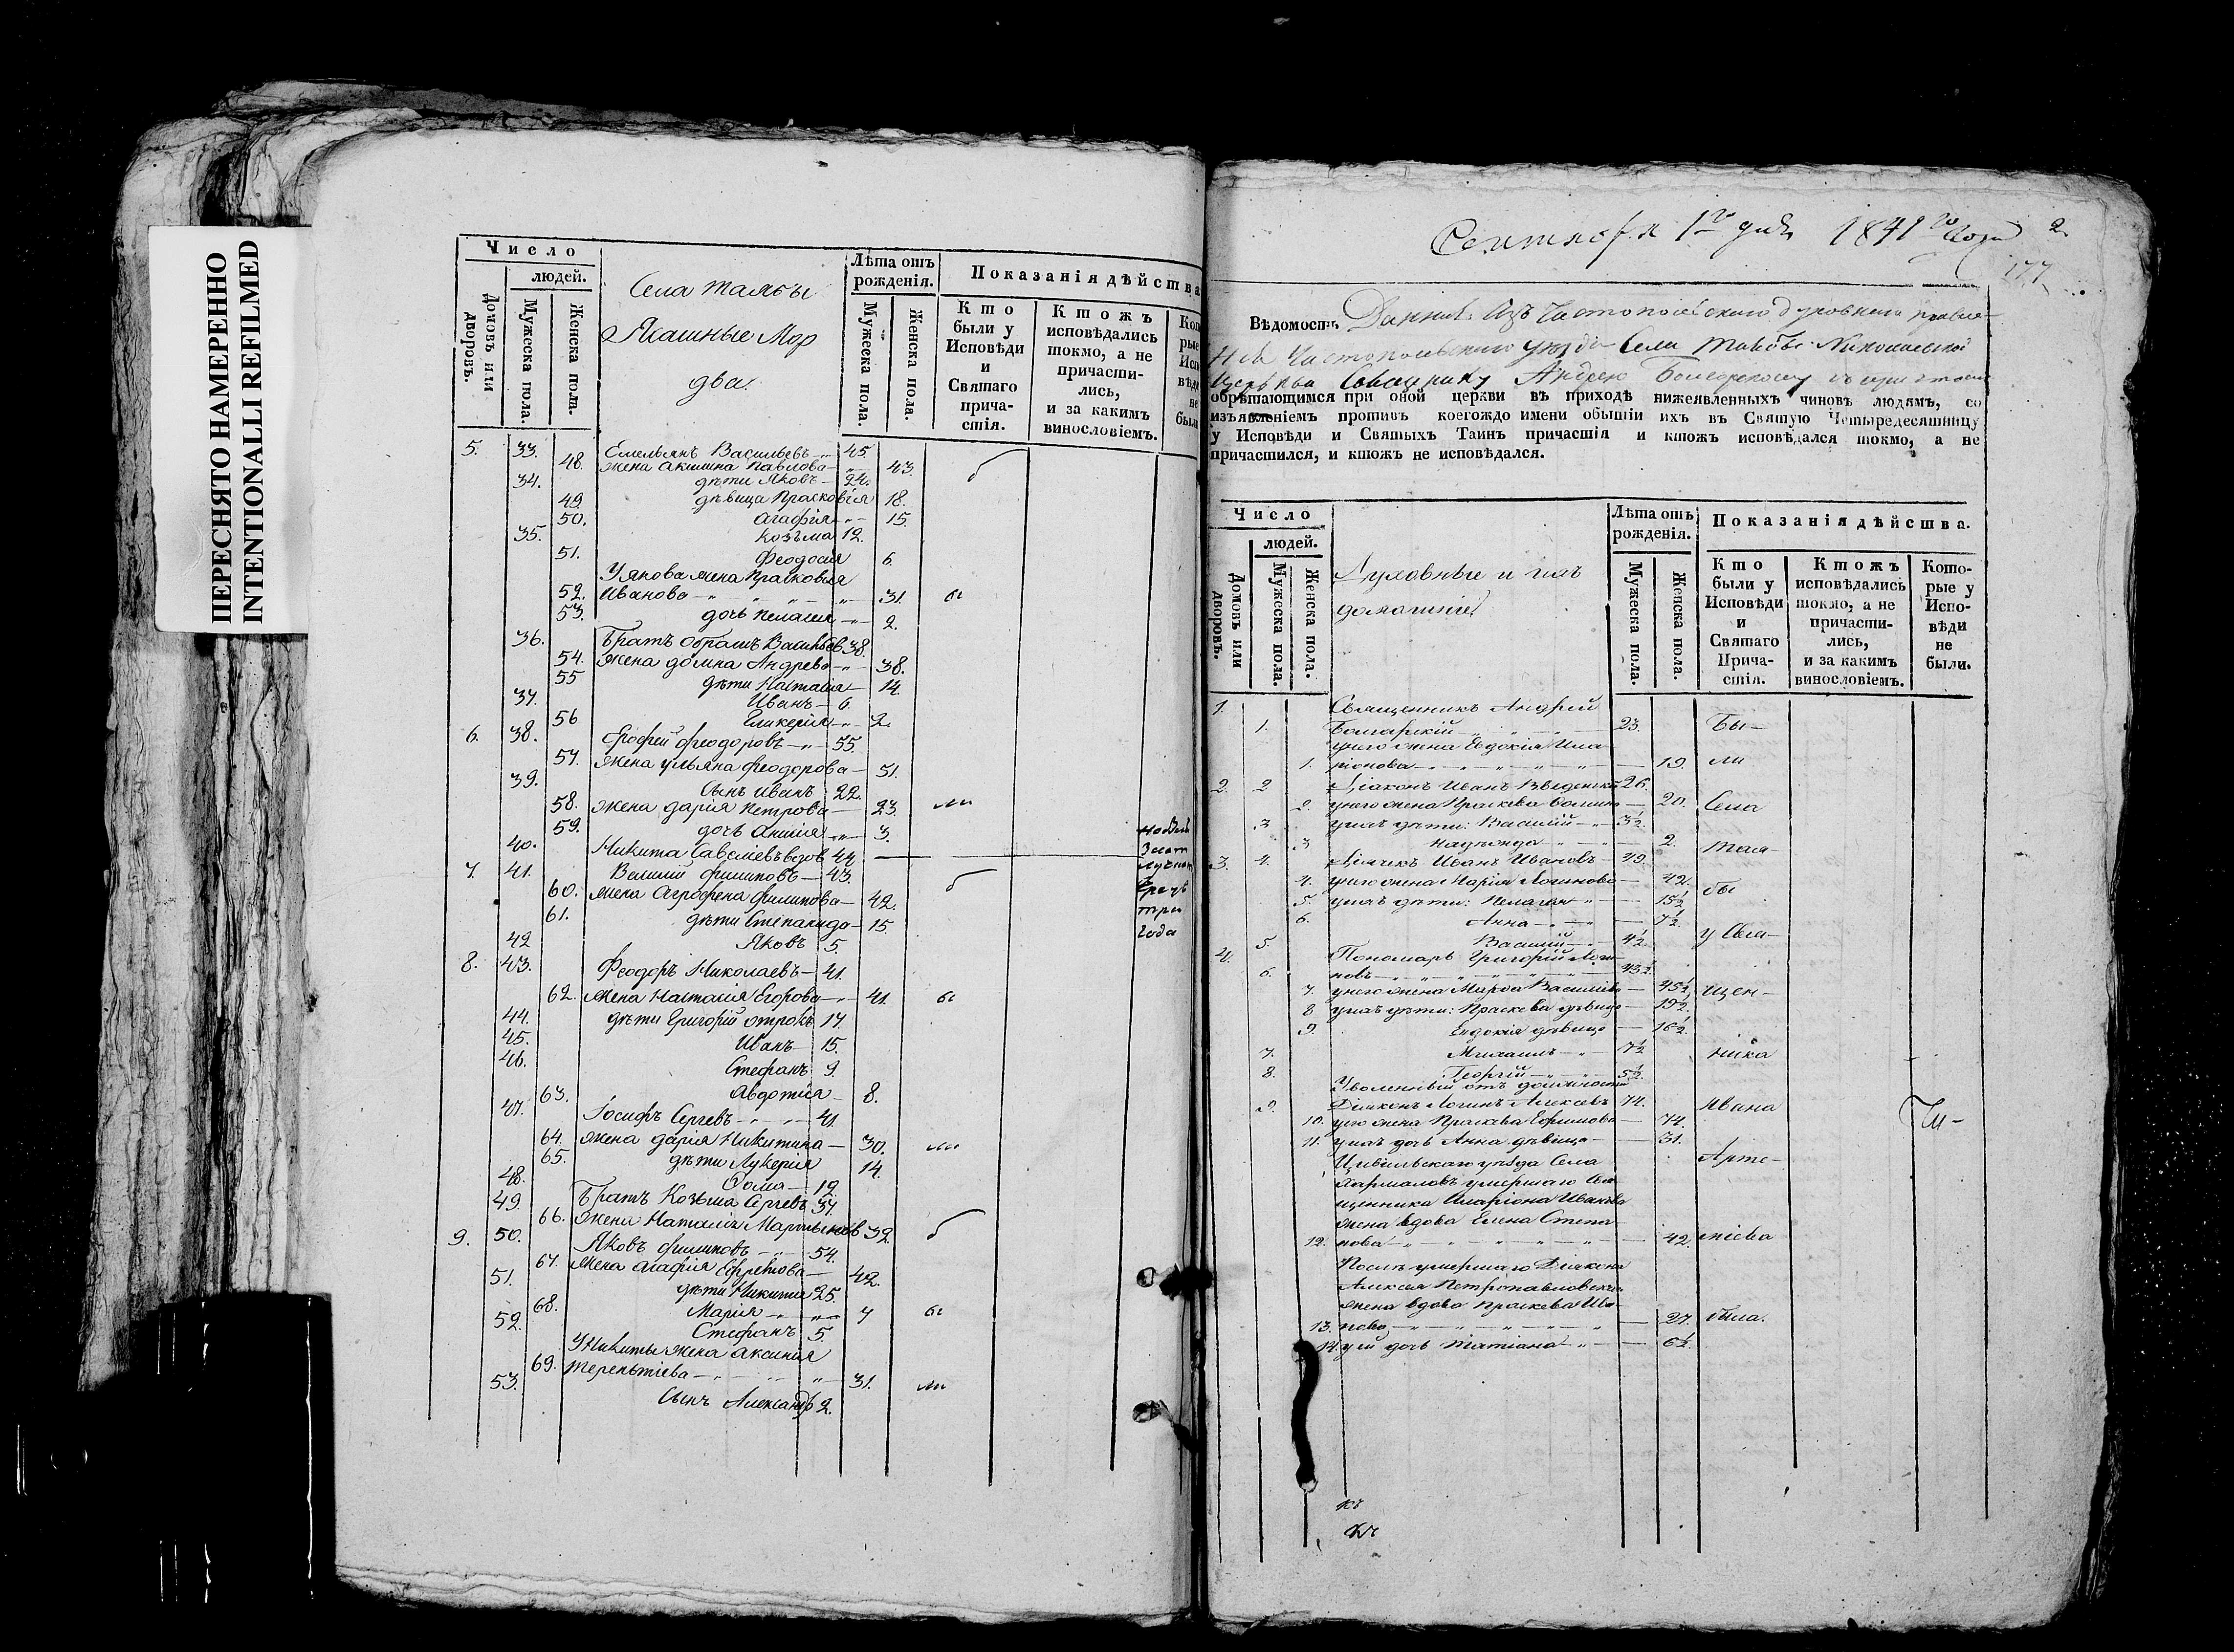 ПЕРЕСНЯТО НАМЕРЕННО
INTENTIONALLI REFILMED
Число
людей.
Домовъ или дворовъ.
Мужеска пола.
Женска пола.
Села Талбы
Ясашные Мор
два.
Лѣта отъ рожденія.
Мужеска пола.
Женска пола.
Показанія дѣйства
Кто были у Исповѣди и Святаго причастія.
Ктожъ исповѣдались токмо, а не причастились, и за какимъ винословіемъ.
5. 33. Емельянъ Васильевъ 45.
48. жена Акилина Павлова 43.
34. дѣти Яковъ 24.
49. дѣвица Прасковія 18.
50. Агафія 15.
35. Козьма 12.
51. Феодосія 6.
У Якова жена Прасковья
52. Иванова 31. бы
53. дочь Пелагея 2.
36. Братъ Абрамъ Васильев 38.
54. жена Домна Андрева 38.
55 дѣти Настасія 14.
37. Иванъ 6.
56 Гликерія 2.
6. 38. Ерофей Феодоровъ 55.
57. жена Ульяна Феодорова 51.
39. Сынъ Иванъ 22.
58. жена Дарія Петрова 23. ли
59. дочь Анисія 3.
40. Никита Савеліевъ вдов 44
7. 41. Василий Филиповъ 43.
60. жена Аграфена Филипова 42.
61. дѣти Степанида 15.
42 Яковъ 5.
три
года
8. 43. Феодоръ Николаевъ 41.
62. жена Настасія Егорова 41. бы
44. дѣти Григорій отрокъ 17.
45. Иванъ 15.
46. Стефанъ 9.
63. Авдотія 8.
47. Іосифъ Сергевъ 41.
64. жена Дарія Никитина 30. ли
65. дѣти Лукерія 14.
48. Фома 12.
49. Братъ Козьма Сергевъ 37.
66. жена Наталія Мартынов 32.
9. 50. Яковъ Филиповъ 54.
67. жена Агафія Ефремова 42.
51. дѣти Никита 25.
68. Марія 7 бы
52. Стефанъ 5.
У Никиты жена Аксиния
69. Терентіева 31. ли
53. Сынъ Александр 2.
Сентября 1го дня 1841го года 2.
177
Вѣдомость Данная изъ Чистопольскаго духовнаго правле-
нія Чистопольскаго уѣзда Села Талбы Николаевской
Церкви Священнику Андрею Болгарскому съ причтомъ
обрѣтающимся при оной церкви въ приходѣ нижеявленныхъ чиновъ людямъ, со
изъявленіемъ противъ коегождо имени обытіи ихъ въ Святую Четыредесятницу
у Исповѣди и Святыхъ Таинъ причастія и ктожъ исповѣдался токмо, а не
причастился, и ктожъ не исповѣдался.
Число
людей.
Домовъ или дворовъ.
Мужеска пола.
Женска пола.
Духовные и ихъ
домашніе
Лѣта отъ рожденія.
Мужеска пола.
Женска пола.
Показанія дѣйства.
Кто были у Исповѣди и Святаго Причастія.
Ктожъ исповѣдались токмо, а не причастились, и за какимъ винословіемъ.
Которые у Исповѣди не были.
1. Священникъ Андрей
1. Болгарскій 23. Бы-
у него жена Евдокія Ила-
1. ріонова 19. ли
2. 2 Діаконъ Иванъ Введенскій 26.
2. у него жена Праскева 20. Села
3 у ихъ дѣти: Василій 3½.
3 Надѣжда 2. Тал-
3. 4. Дьячекъ Иванъ Ивановъ 49.
4. у него жена Марія Логинова 42. бы
5. у ихъ дѣти: Пелагея 15½
6. Анна 7½.
5. Василій 4½ у Свя-
4. Пономарь Григорій Логи-
6. новъ 43½
7. у него жена Марфа Васильева 45½ щен-
8 у ихъ дѣти: Праскева дѣвица 19½
9. Евдокія дѣвица 16½.
7. Михаилъ 7½ ника
8. Георгій 5½.
Уволенный отъ должности
9. Діаконъ Логинъ Алексѣевъ 74. Ивана
10. его жена Праскева Ефимова 74.
11. у ихъ дочь Анна дѣвица 31.
Цивильскаго уѣзда Села Арте-
умершаго Свя-
щенника Иларіона Иванова
жена вдова Елена Степа-
12. нова 42. міева
После умершаго Діакона
Алексія Петропавловскаго
жена вдова Праскева Ива-
13. нова 27. была.
14. у ей дочь Татіана 6½.